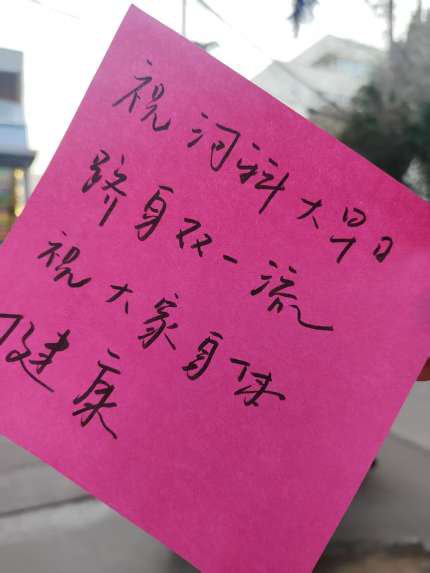 祝河科大早日
跻身双一流
祝大家身体
健康